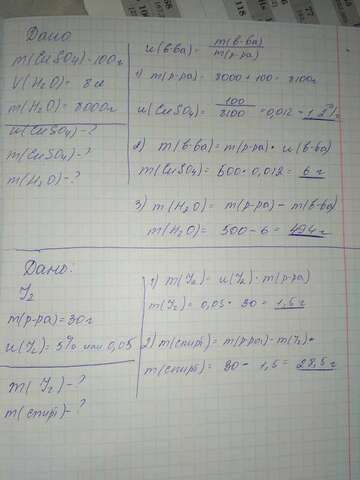 Дано
m(CuSO4)-100г
V(H2O)= 8л
m(H2O)= 8000г
ω(CuSO4)-?
m(CuSO4)-?
m(H2O)-?
ω(в-ва)= m(в-ва)/m(р-ра)
1) m(р-ра)= 8000+100= 8100г
ω(CuSO4)= 100/8100 =0,012=1,2%
2) m(в-ва)=m(р-ра)·ω(в-ва)
m(CuSO4)= 500·0,012= 6г
3) m(H2O)= m(р-ра)-m(в-ва)
m(H2O)= 500-6= 494г
Дано:
J2
m(р-ра)=30г
ω(J2)= 5% или 0,05
m(J2)-?
m(спирт)-?
1) m(J2)= ω(J2)·m(р-ра)
m(J2)= 0,05·30= 1,5г
2) m(спирт)= m(р-ра)-m(J2)=
m(спирт)= 30-1,5= 28,5г